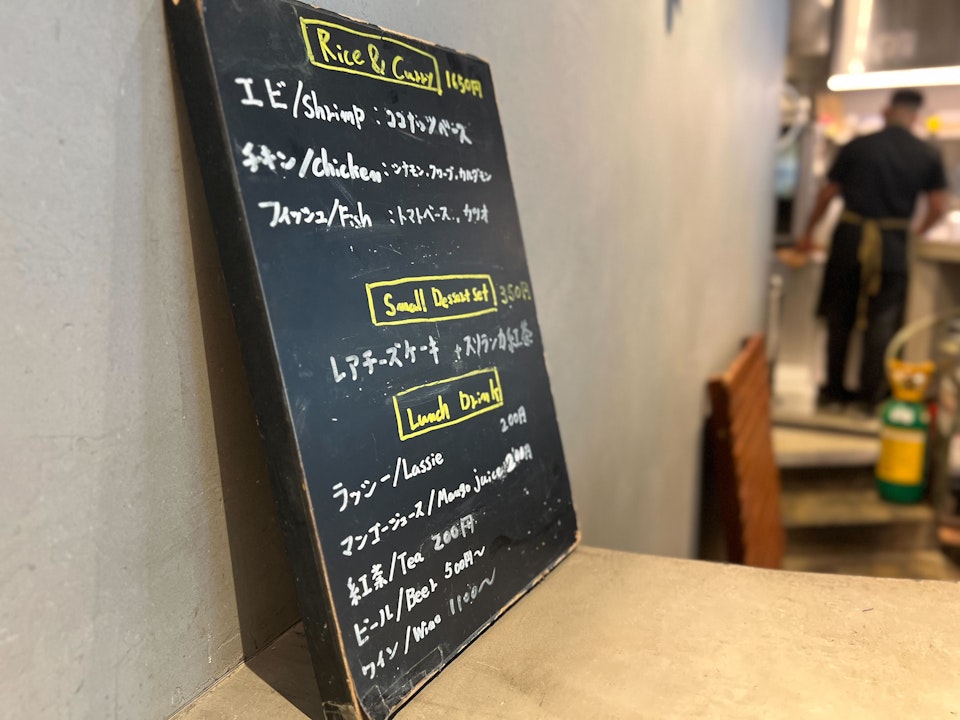 Rice & Curry 1650円
エビ/Shrimp : ココナッツベース
チキン/chicken : シナモン、クローブ、カルダモン
フィッシュ/Fish : トマトベース、カツオ
Small Dessert set 350円
レアチーズケーキ + スリランカ紅茶
Lunch Drink
200円
ラッシー/Lassie
マンゴージュース/Mango juice 200円
紅茶/Tea 200円
ビール/Beer 500円〜
ワイン/Wine 1100〜